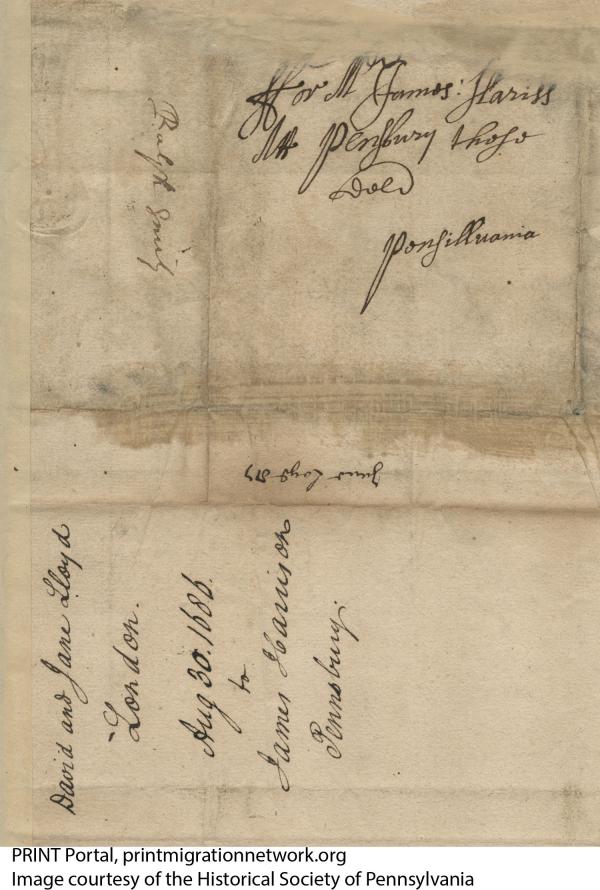 ffor Mr James: Hariss
Att Pensbury these
deld
Pensillvania
Ralph Smith
David and Jane Lloyd
London.
Aug 30. 1686.
to
James Harrison
Pennsbury.
PRINT Portal, printmigrationnetwork.org
Image courtesy of the Historical Society of Pennsylvania